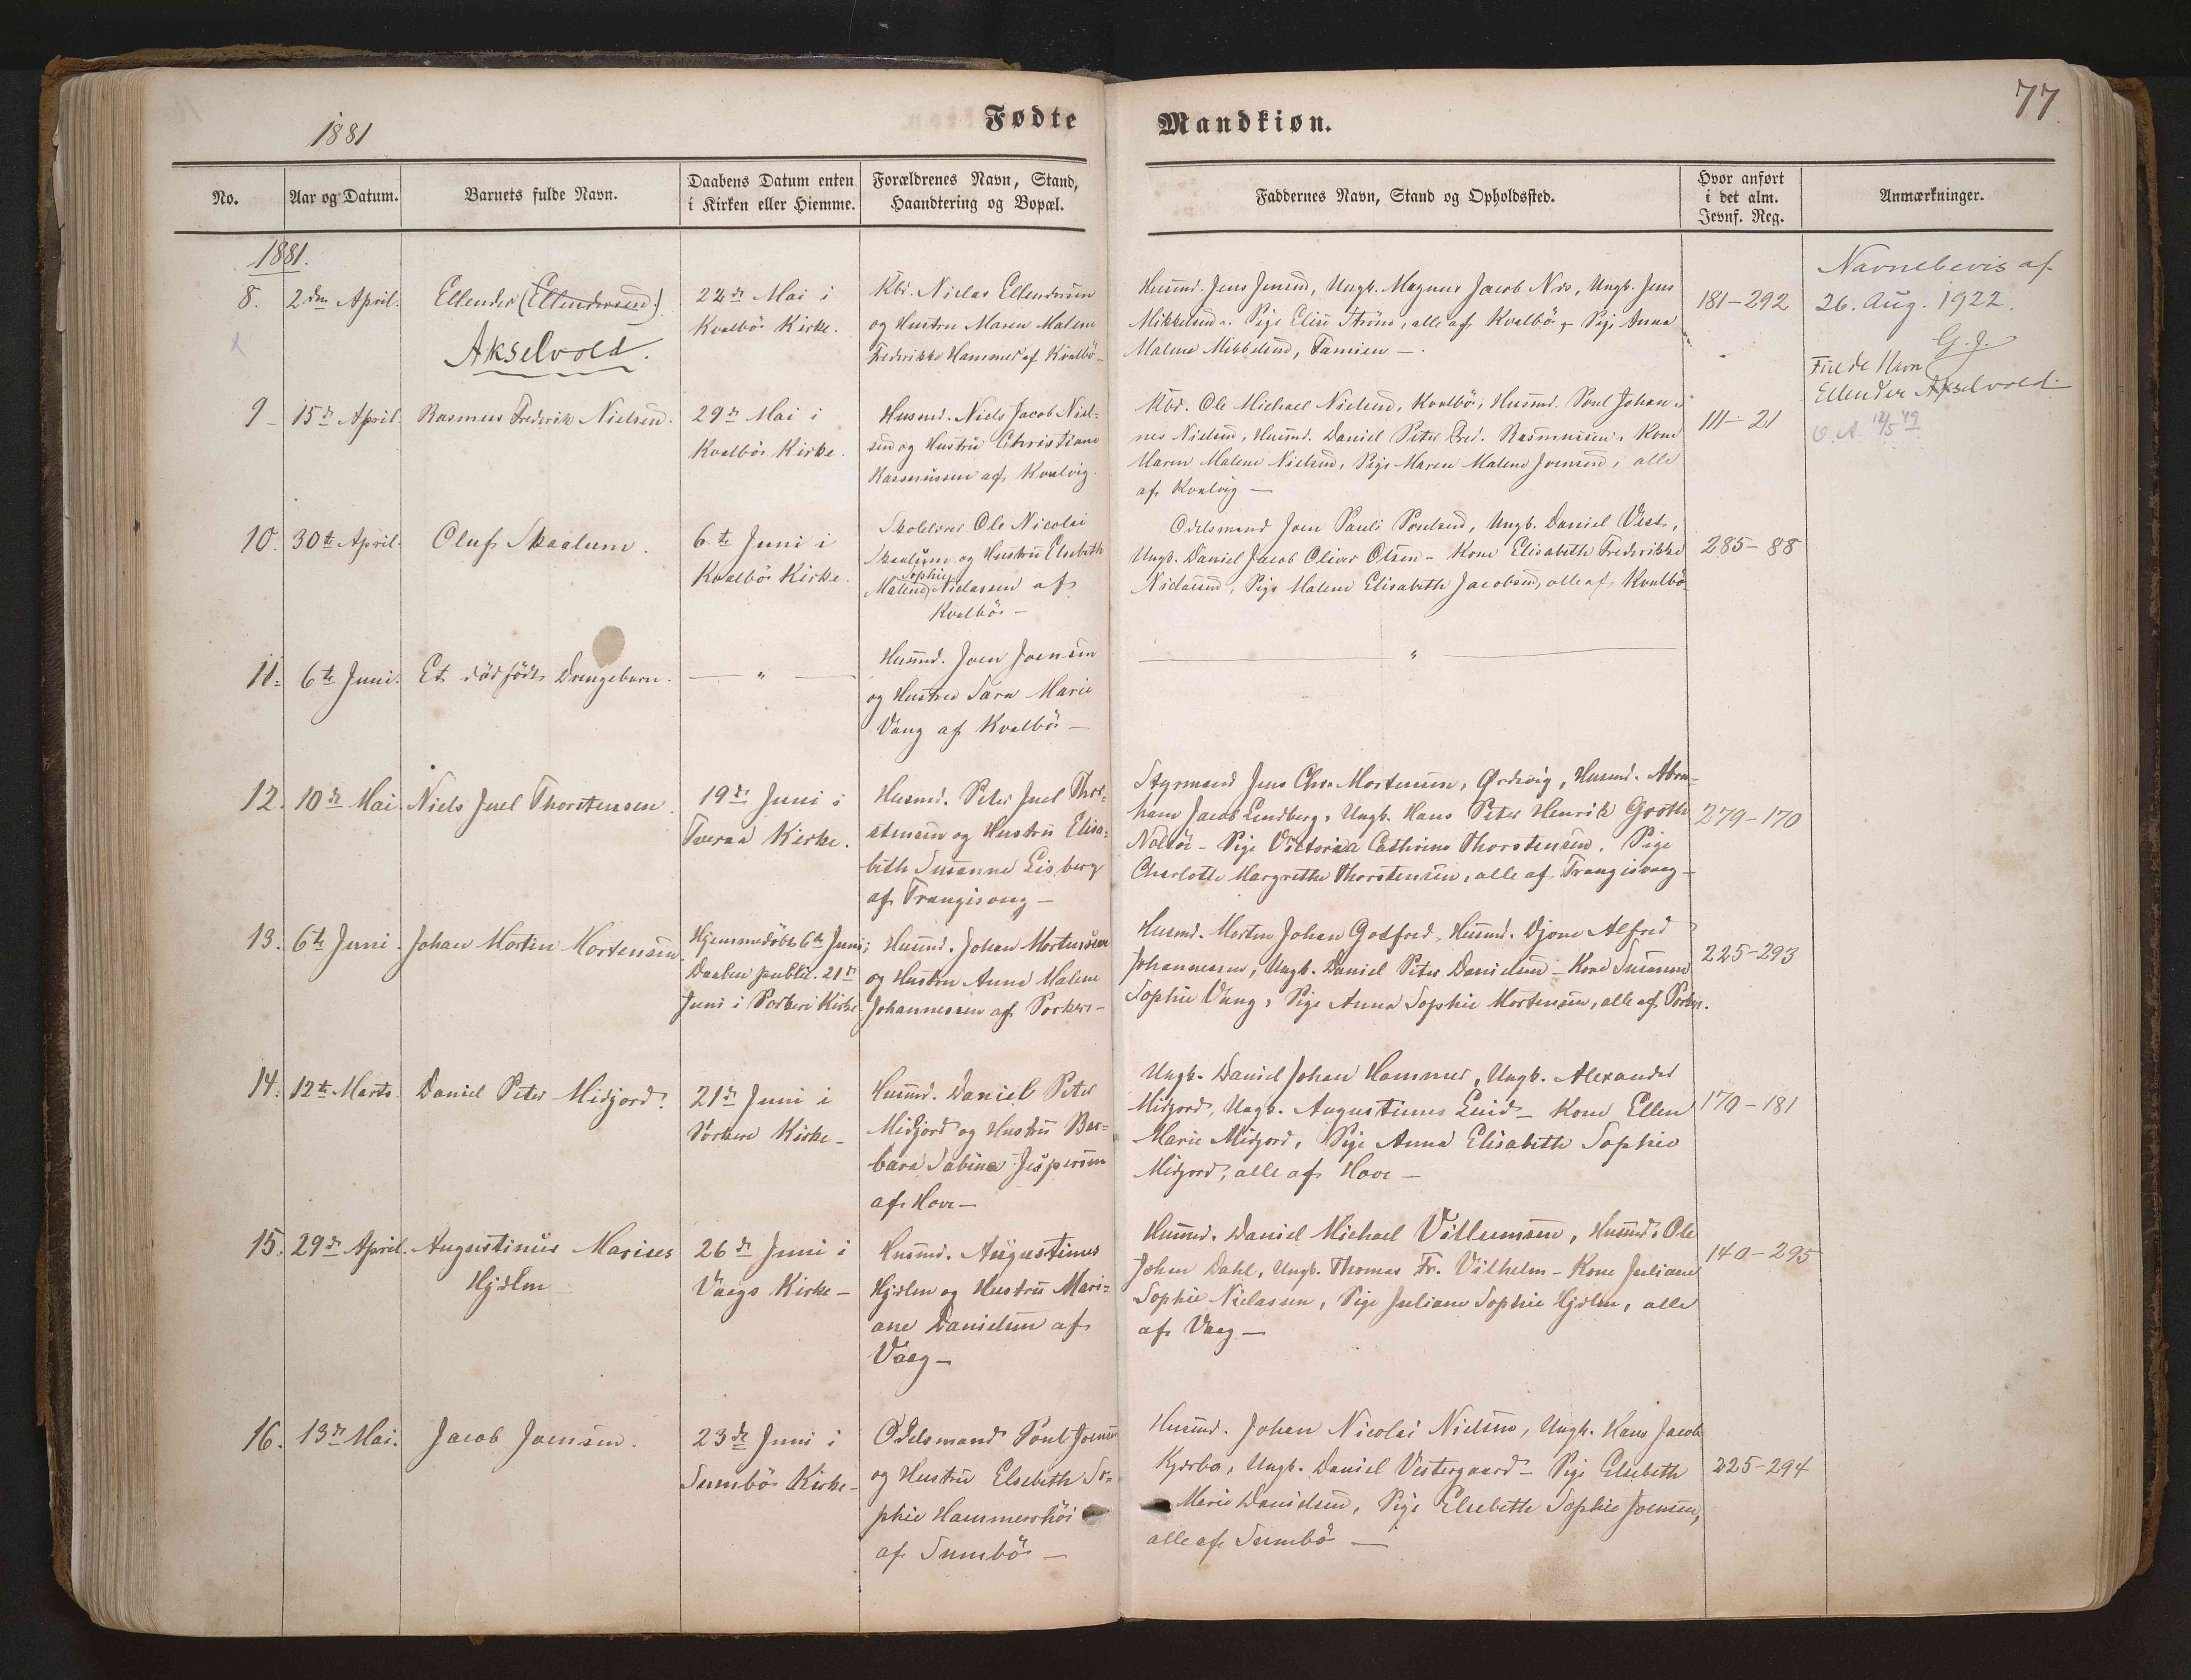 1881
Fødte
Mandkiøn.
77
No.
Aar og Datum.
Barnets fulde Navn.
Daabens Datum enten
i Kirken eller Hiemme.
Forældrenes Navn, Stand,
Haandtering og Bopæl.
Faddernes Navn, Stand og Opholdssted.
Hvor anført
i det alm.
Jevnf. Reg.
Anmærkninger.
1881.
8.
2den April.
Ellender (Ellendersen).
Akselvold.
22de Mai i
Kvalbö Kirke.
Kbd. Niclas Ellendersen
og Hustru Maren Malene
Frederikke Hammer af Kvalbö –
Husmd. Jens Jensen, Ungk. Magnus Jacob, Ungk. Jens
Mikkelsen. Pige Elise Thröne, alle af Kvalbö, Pige Anna
Malene Mikkelsen, Famien –
181–292
Navnebevis af
26. Aug. 1922.
G. J.
Fulde Navn
Ellender Akselvold.
O. A. 12/5 49
9 –
15de April.
Rasmus Frederik Nielsen.
29de Mai i
Kvalbö Kirke.
Husmd. Niels Jacob Niel-
sen og Hustru Christiane
Rasmussen af Kvalvig.
Kbd. Ole Michael Nielsen, Kvalbö, Husmd. Poul Johan-
nes Nielsen, Husmd. Daniel Peter Fred. Rasmussen, Kone
Maren Malene Nielsen, Pige Maren Malene Joensen, alle
af Kvalvig –
111–21
10.
30te April.
Oluf Skaalum.
6te Juni i
Kvalbö Kirke.
Skolelærer Ole Nicolai
Skaalum og Hustru Elsebeth
Sophie
Malene Niclasen af
Kvalbö –
Odelsmand Joen Pauli Poulsen, Ungk. Daniel Vest,
Ungk. Daniel Jacob Oliver Olsen – Kone Elisabeth Frederikke
Niclasen, Pige Malene Elisabeth Jacobsen, alle af Kvalbö.
285–88
11.
6te Juni.
Et dødfödt Drengebarn.
— " —
Husmd. Joen Joensen
og Hustru Sara Marie
Vang af Kvalbö –
— " —
12.
10de Mai.
Niels Juel Thorstensen.
19de Juni i
Tveraa Kirke.
Husmd. Peter Juel Thor-
stensen og Hustru Elisa-
beth Susanne Eisberg
af Trangisvaag –
Styrmand Jens Chr. Mortensen, Ördevig, Husmd. Abra-
ham Jacob Lindberg, Ungk. Hans Peter Henrik Groth
Nolsöe – Pige Victoria Cathrine Thorstensen, Pige
Charlotte Margrethe Thorstensen, alle af Trangisvaag –
279–170
13.
6te Juni.
Johan Morten Mortensen.
Hjemmedöbt 6te Juni;
Daaben public. 21de
Juni i Porkeri Kirke
Husmd. Johan Mortensen
og Hustru Anna Malene
Johannessen af Porkeri –
Husmd. Morten Johan Godfred, Husmd. Djone Alfred
Johannessen, Ungk. Daniel Peter Danielsen – Kone Susanne
Sophie Vang, Pige Anna Sophie Mortensen, alle af Porkeri.
225–293
14.
12te Marts.
Daniel Peter Midjord.
21de Juni i
Porkeri Kirke –
Husmd. Daniel Peter
Midjord og Hustru Bar-
bara Sabina Jespersen
af Hove –
Ungk. Daniel Johan Hammer, Ungk. Alexander
Midjord, Ungk. Augustinus Luid – Kone Ellen
Marie Midjord, Pige Anna Elisabeth Sophie
Midjord, alle af Hove –
170–181
15.
29de April.
Augustinus Marius
Hjelm
26de Juni i
Vaags Kirke –
Husmd. Augustinus
Hjelm og Hustru Mari-
ane Danielsen af
Vaag –
Husmd. Daniel Michael Villumsen, Husmd. Ole
Johan Dahl, Ungk. Thomas Fr. Vilhelm – Kone Juliane
Sophie Niclasen, Pige Juliane Sophie Hjelm, alle
af Vaag –
140–295
16.
13de Mai.
Jacob Joensen.
23de Juni i
Sumbö Kirke –
Odelsmand Poul Joensen
og Hustru Elsebeth So-
phie Hammershöi
af Sumbö –
Husmd. Johan Nicolai Nielsen, Ungk. Hans Jacob
Kjærbo, Ungk. Daniel Vestergaard – Pige Elsebeth
Marie Danielsen, Pige Elsebeth Sophie Joensen,
alle af Sumbö –
225–294